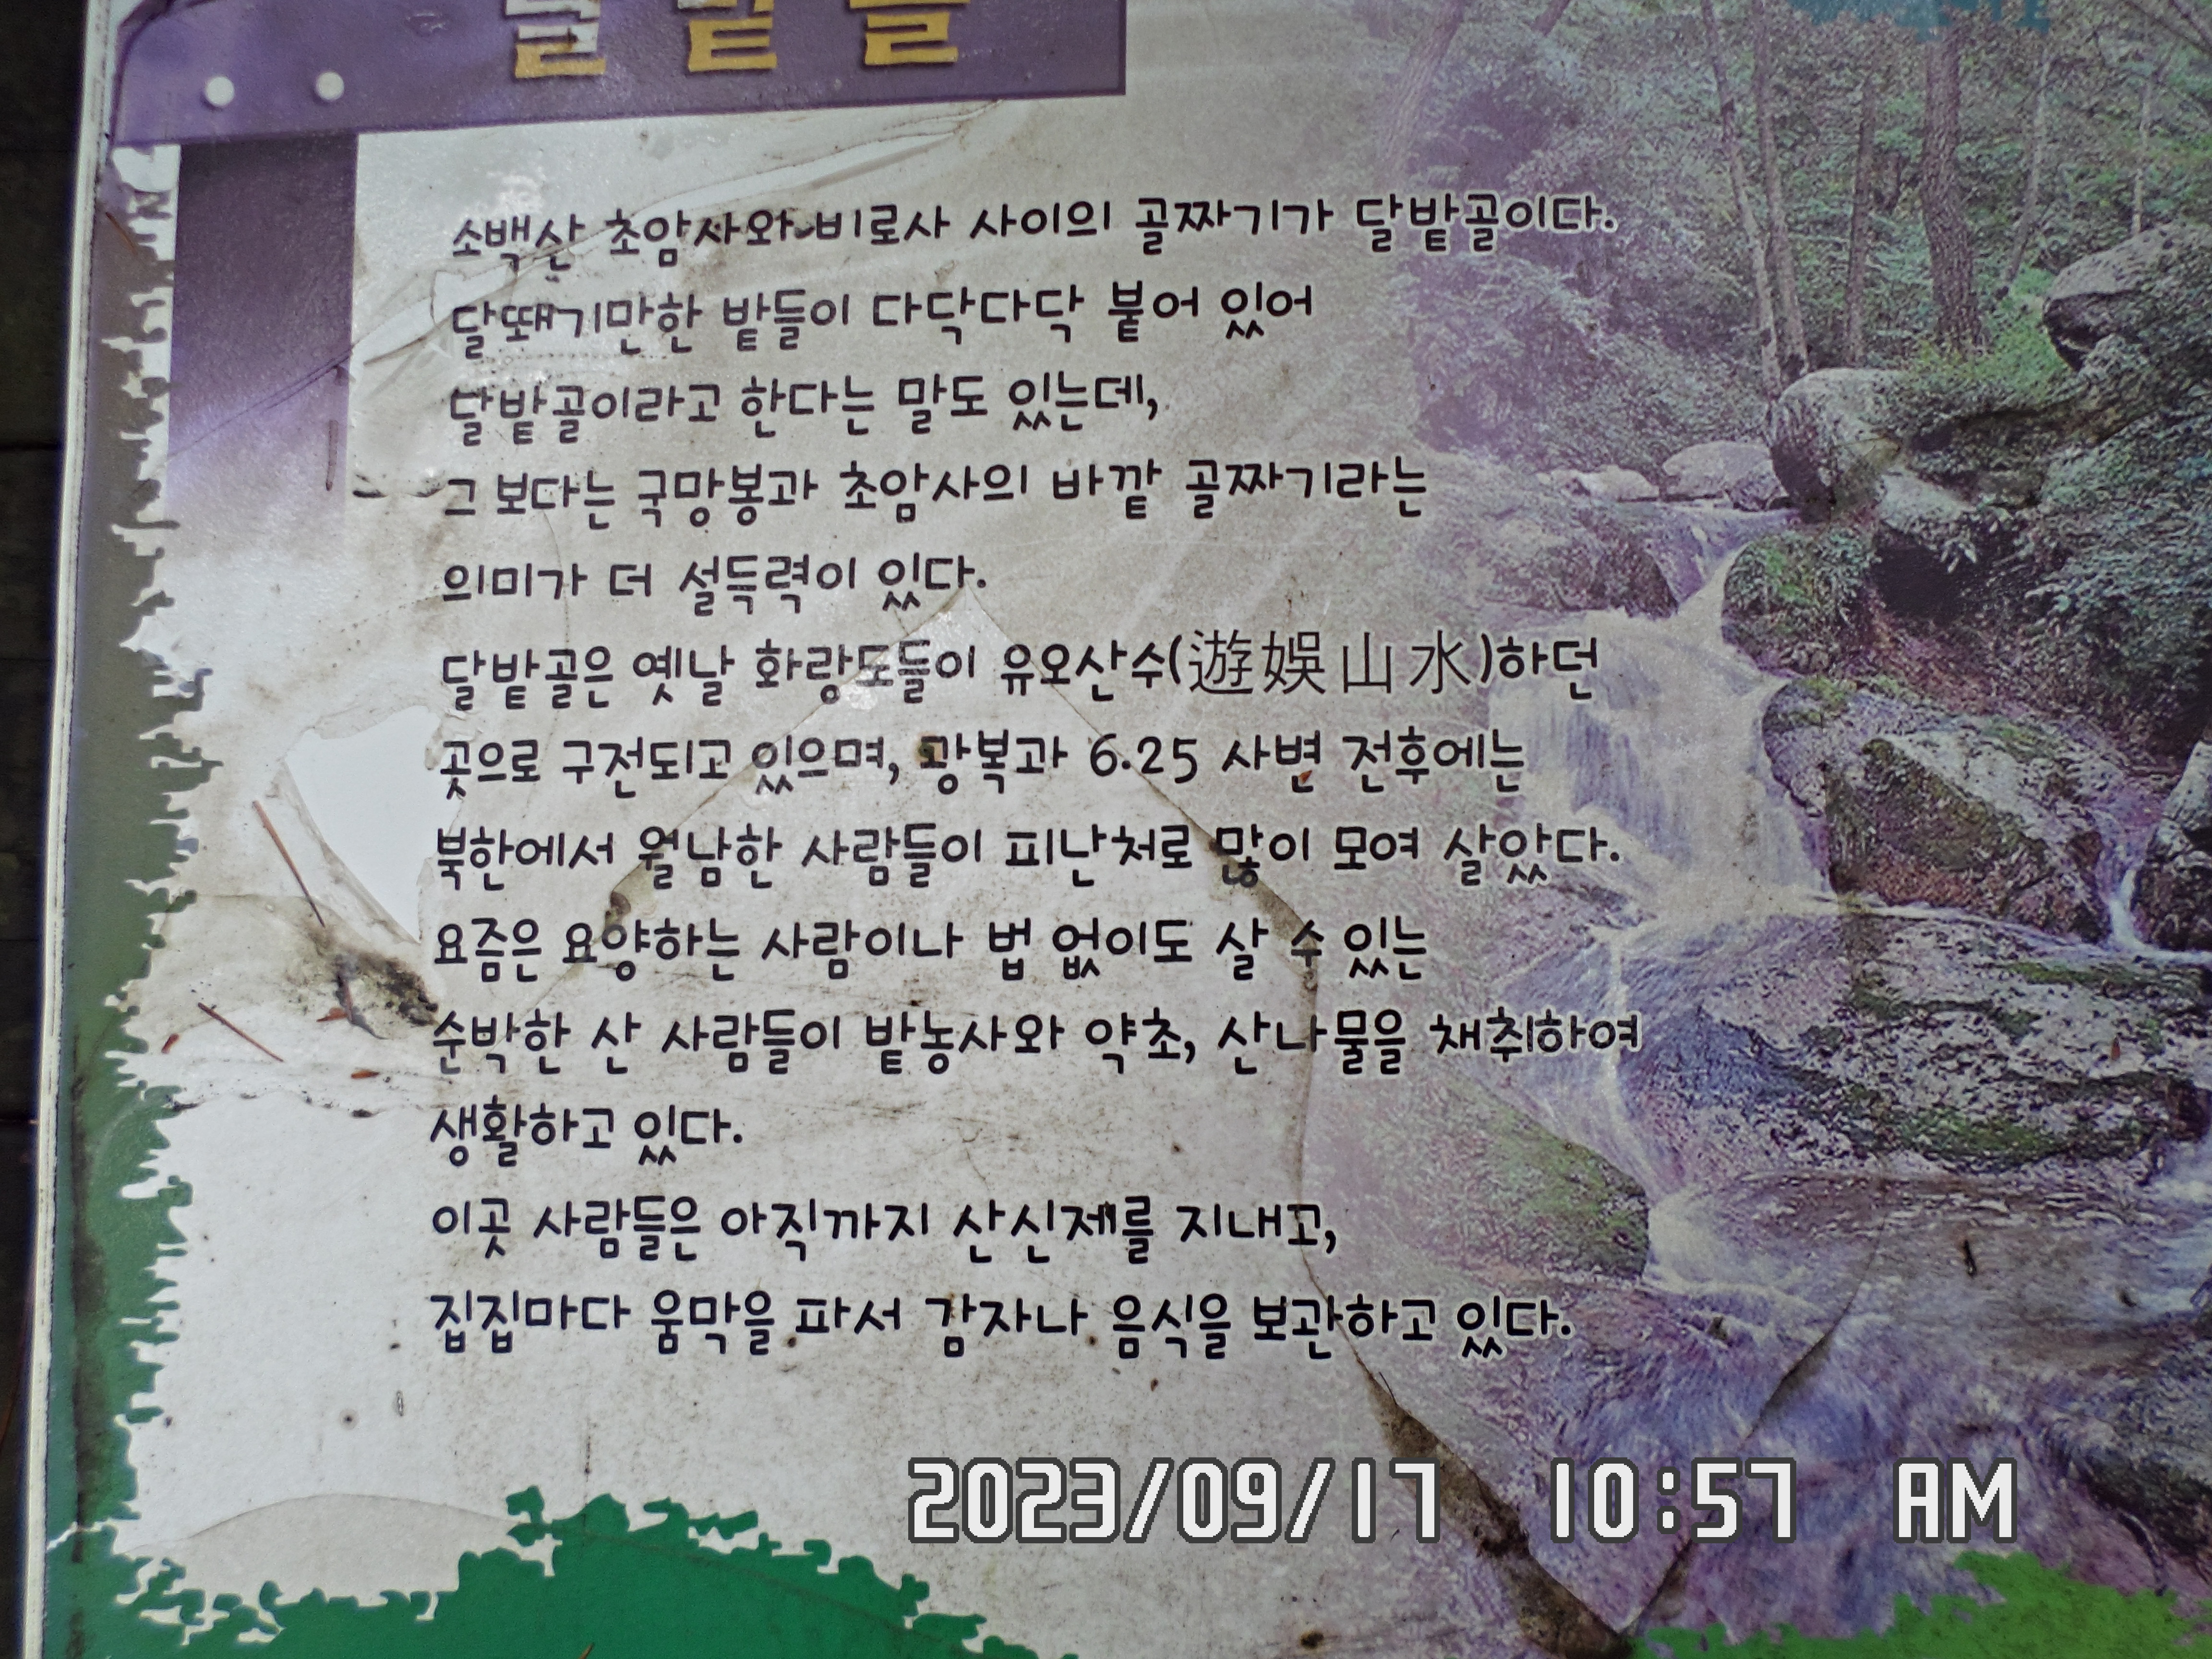 달밭골
소백산 초암사와 비로사 사이의 골짜기가 달밭골이다.
달뙈기만한 밭들이 다닥다닥 붙어 있어
달밭골이라고 한다는 말도 있는데,
그 보다는 국망봉과 초암사의 바깥 골짜기라는
의미가 더 설득력이 있다.
달밭골은 옛날 화랑도들이 유오산수(遊娛山水)하던
곳으로 구전되고 있으며, 광복과 6.25 사변 전후에는
북한에서 월남한 사람들이 피난처로 많이 모여 살았다.
요즘은 요양하는 사람이나 법 없이도 살 수 있는
순박한 산 사람들이 밭농사와 약초, 산나물을 채취하여
생활하고 있다.
이곳 사람들은 아직까지 산신제를 지내고,
집집마다 움막을 파서 감자나 음식을 보관하고 있다.
2023/09/17 10:57 AM